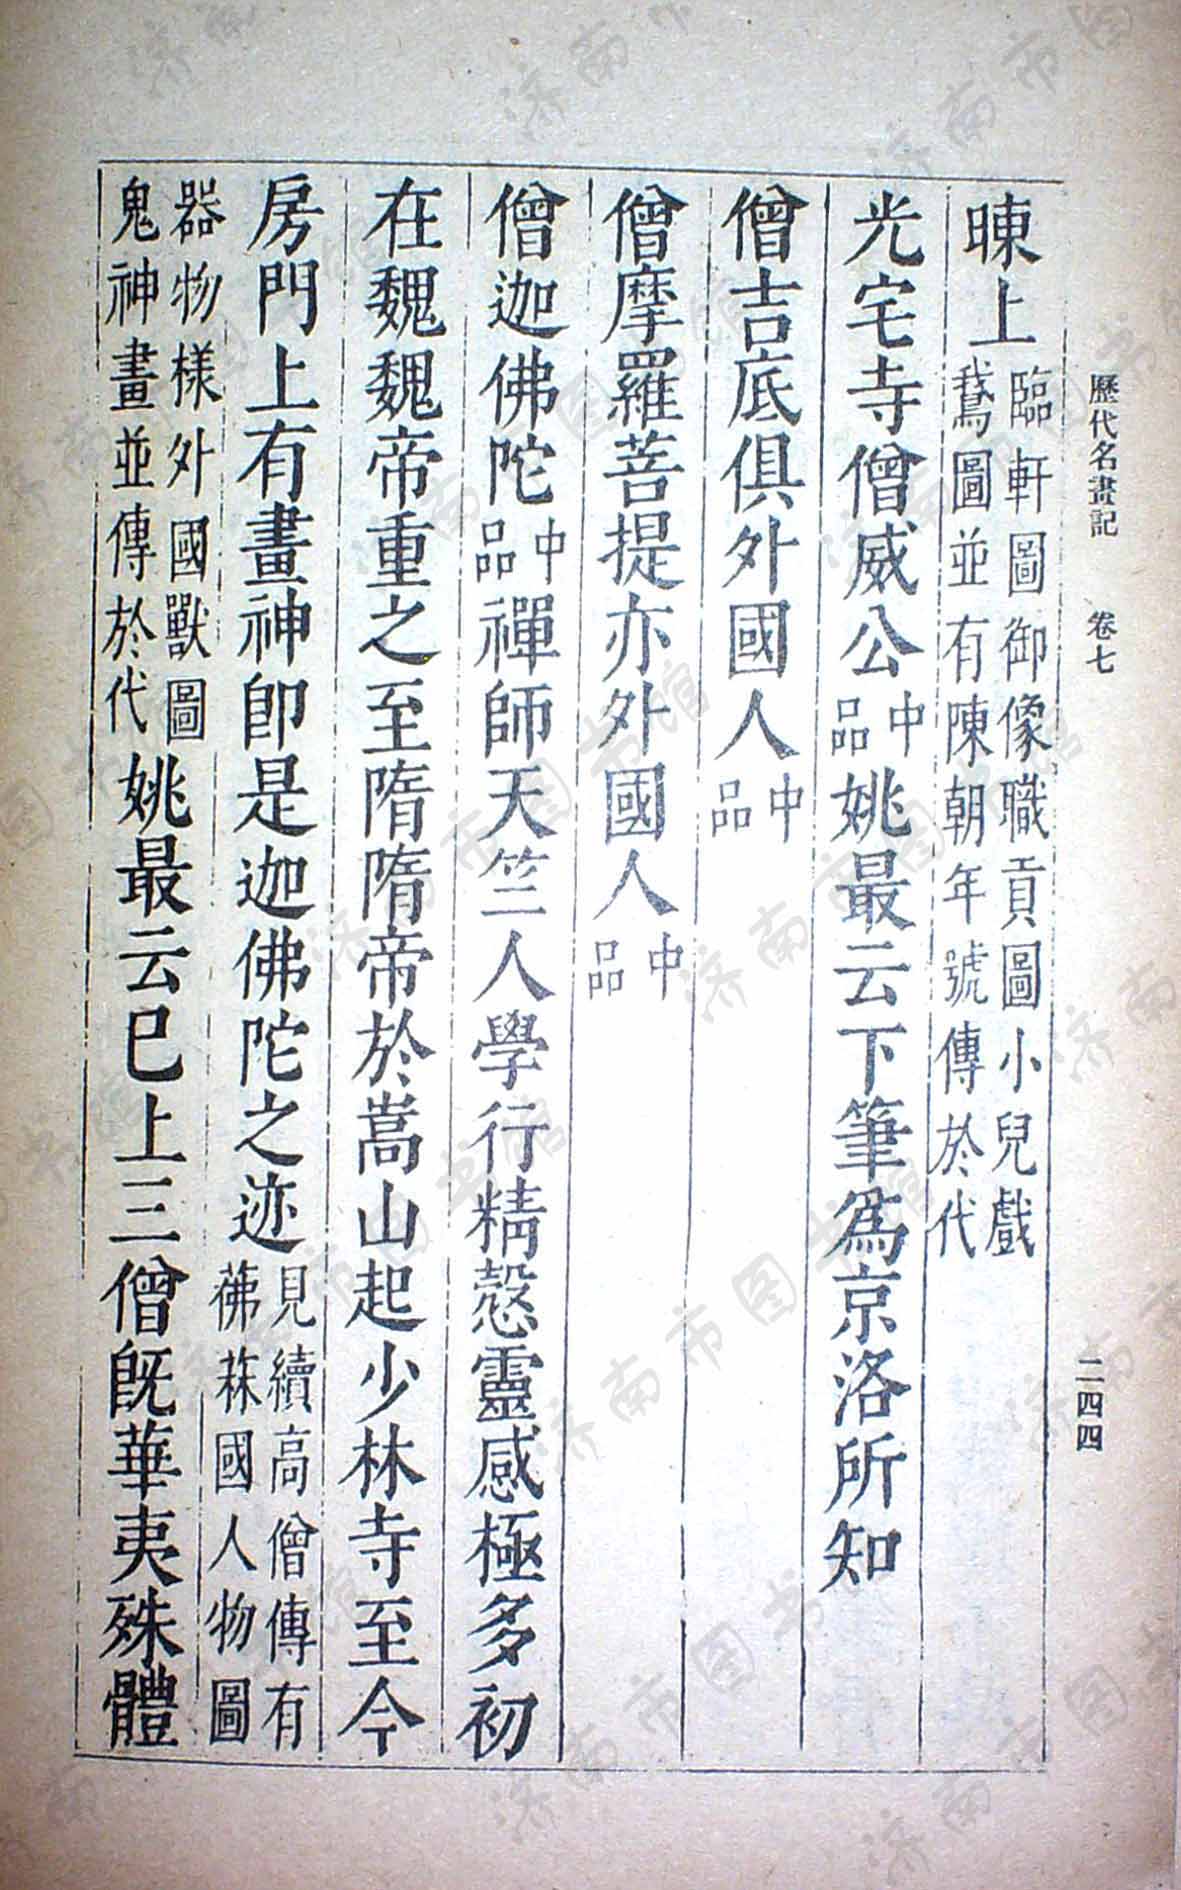 歷代名畫記 卷七 二四四
暕上臨軒圖御像職貢圖小兒戲
鵞圖並有陳朝年號傳於代
光宅寺僧威公中品姚最云下筆為京洛所知
僧吉底俱外國人中品
僧摩羅菩提亦外國人中品
僧迦佛陀中品禪師天竺人學行精慤靈感極多初
在魏魏帝重之至隋隋帝於嵩山起少林寺至今
房門上有畫神卽是迦佛陀之迹見續高僧傳有
茀菻國人物圖
器物樣外國獸圖
鬼神畫並傳於代姚最云已上三僧旣華夷殊體
济南市图书馆